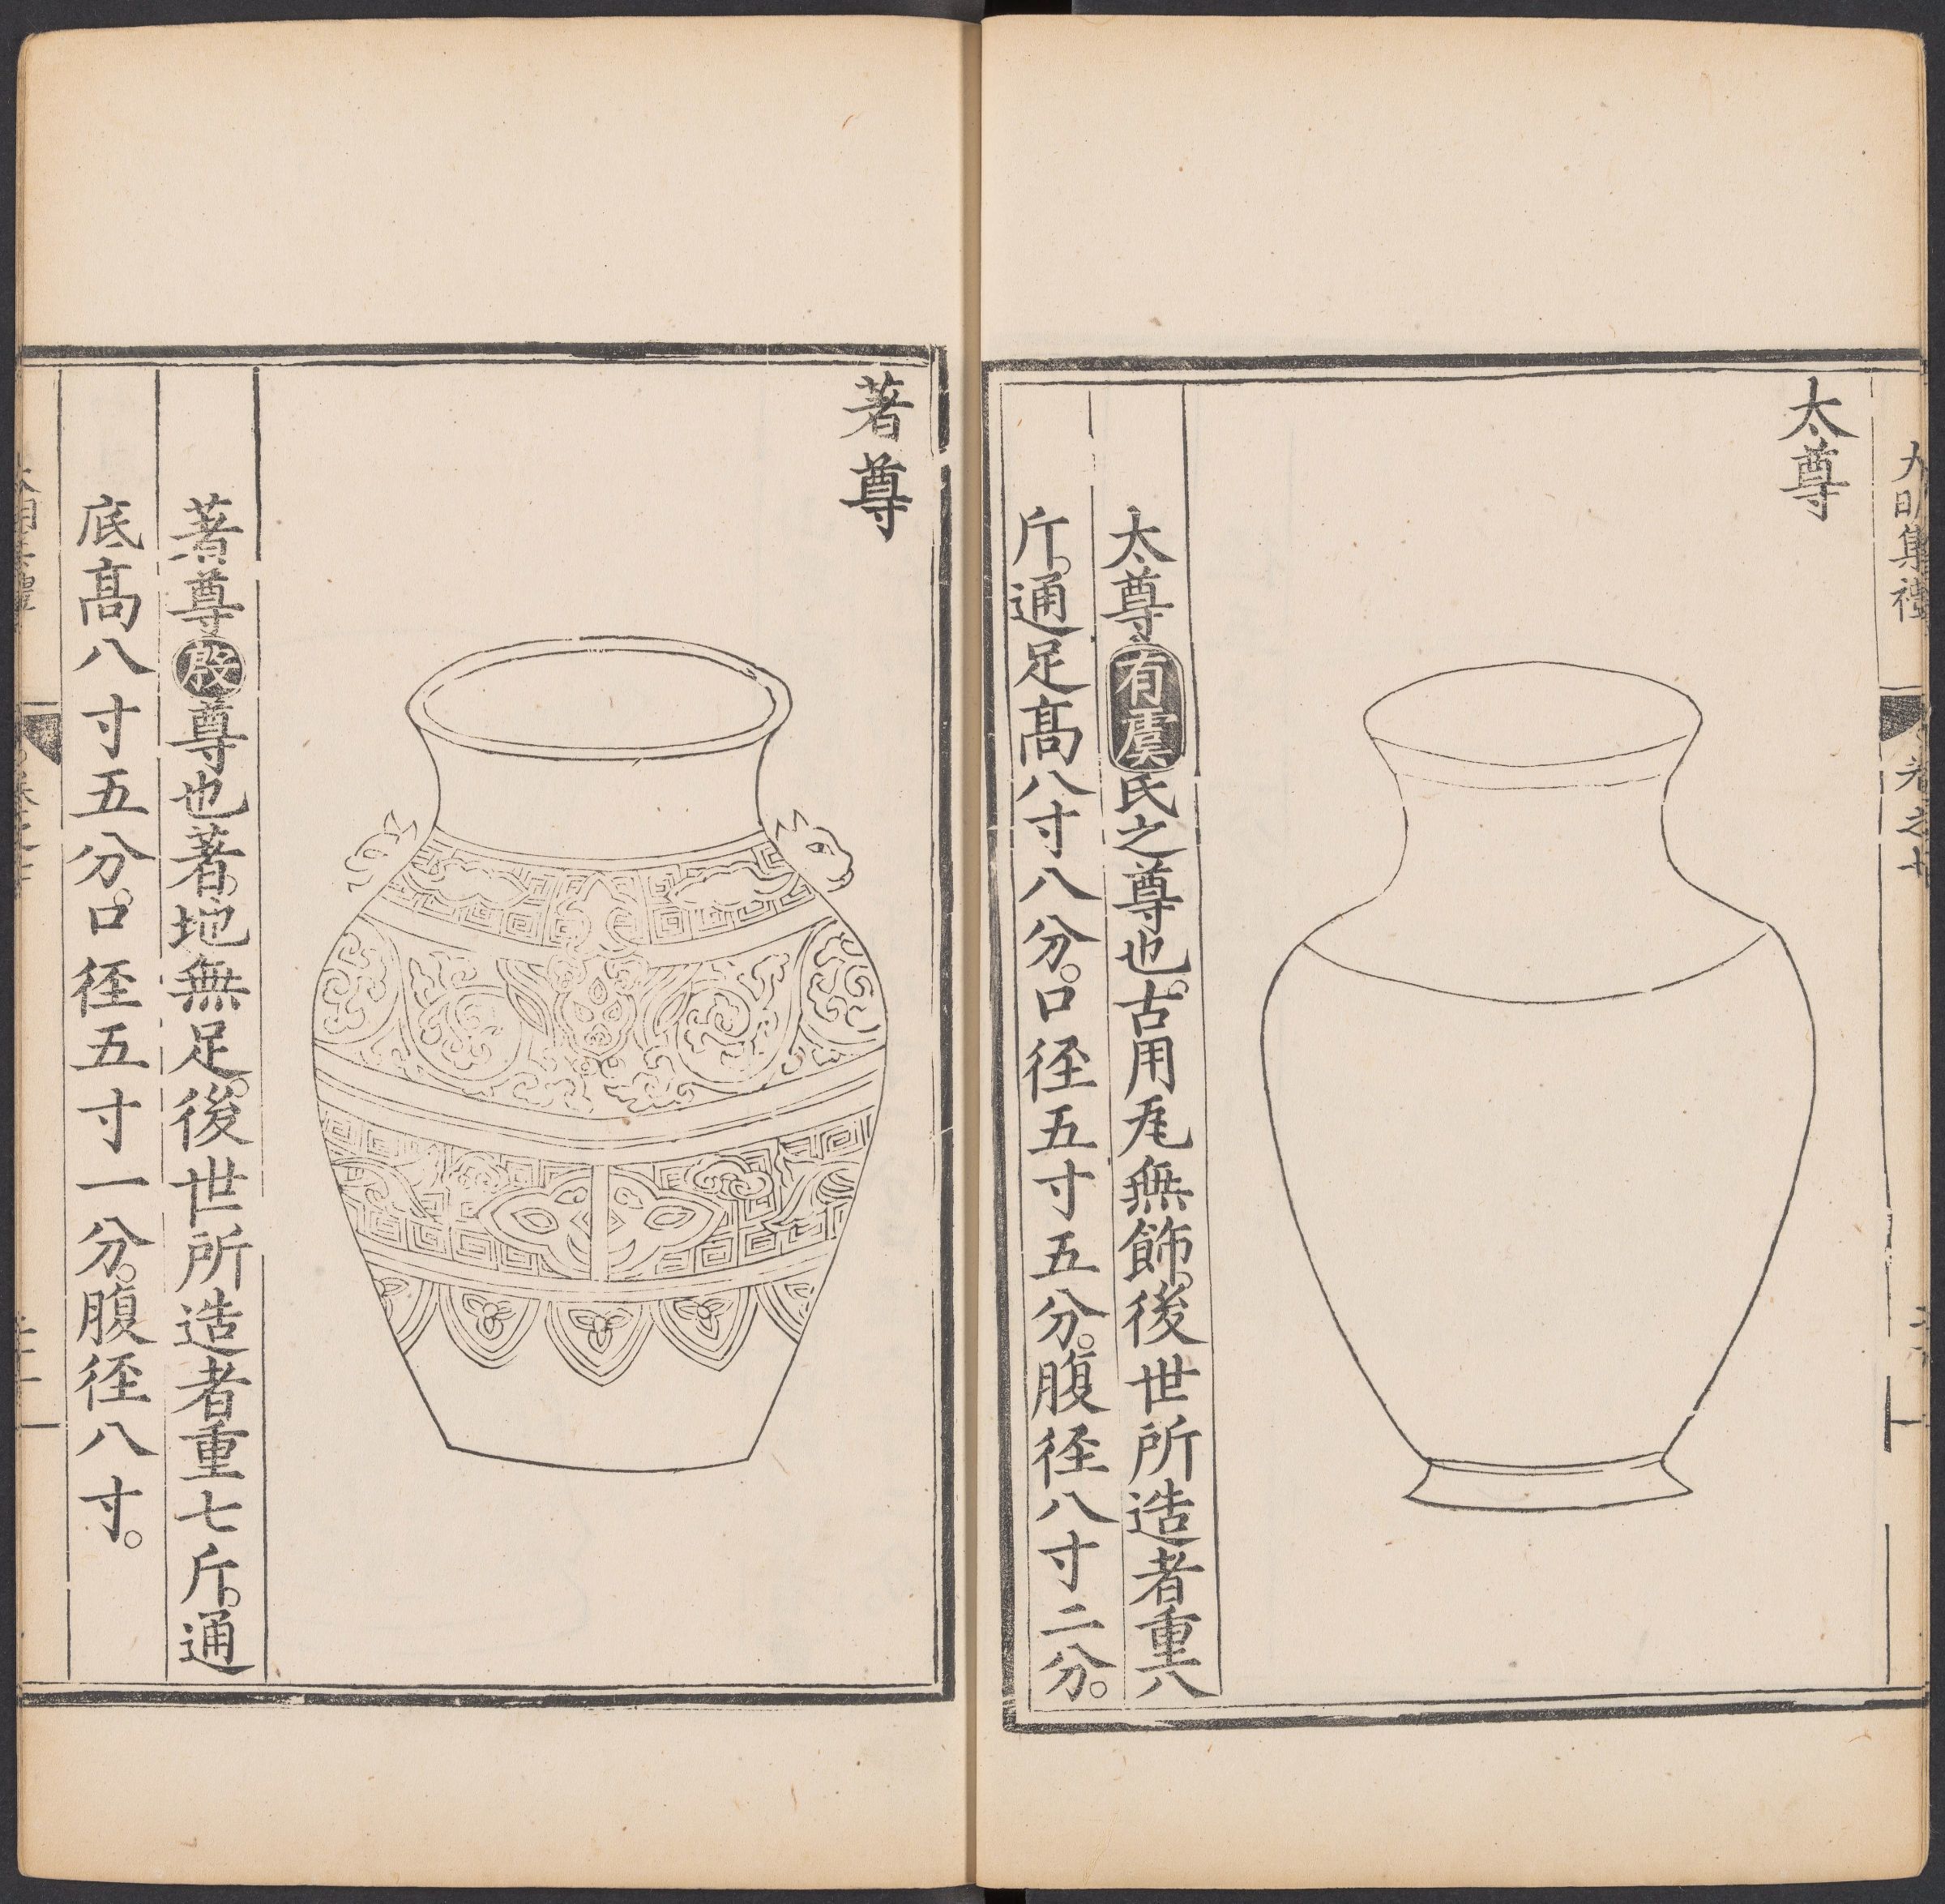 大明集禮
卷之七
太尊
太尊有虞氏之尊也。古用瓦無飾。後世所造者重八
斤。通足高八寸八分。口徑五寸五分。腹徑八寸二分。
著尊
著尊殷尊也著。地無足。後世所造者重七斤。通
底高八寸五分。口徑五寸一分。腹徑八寸。